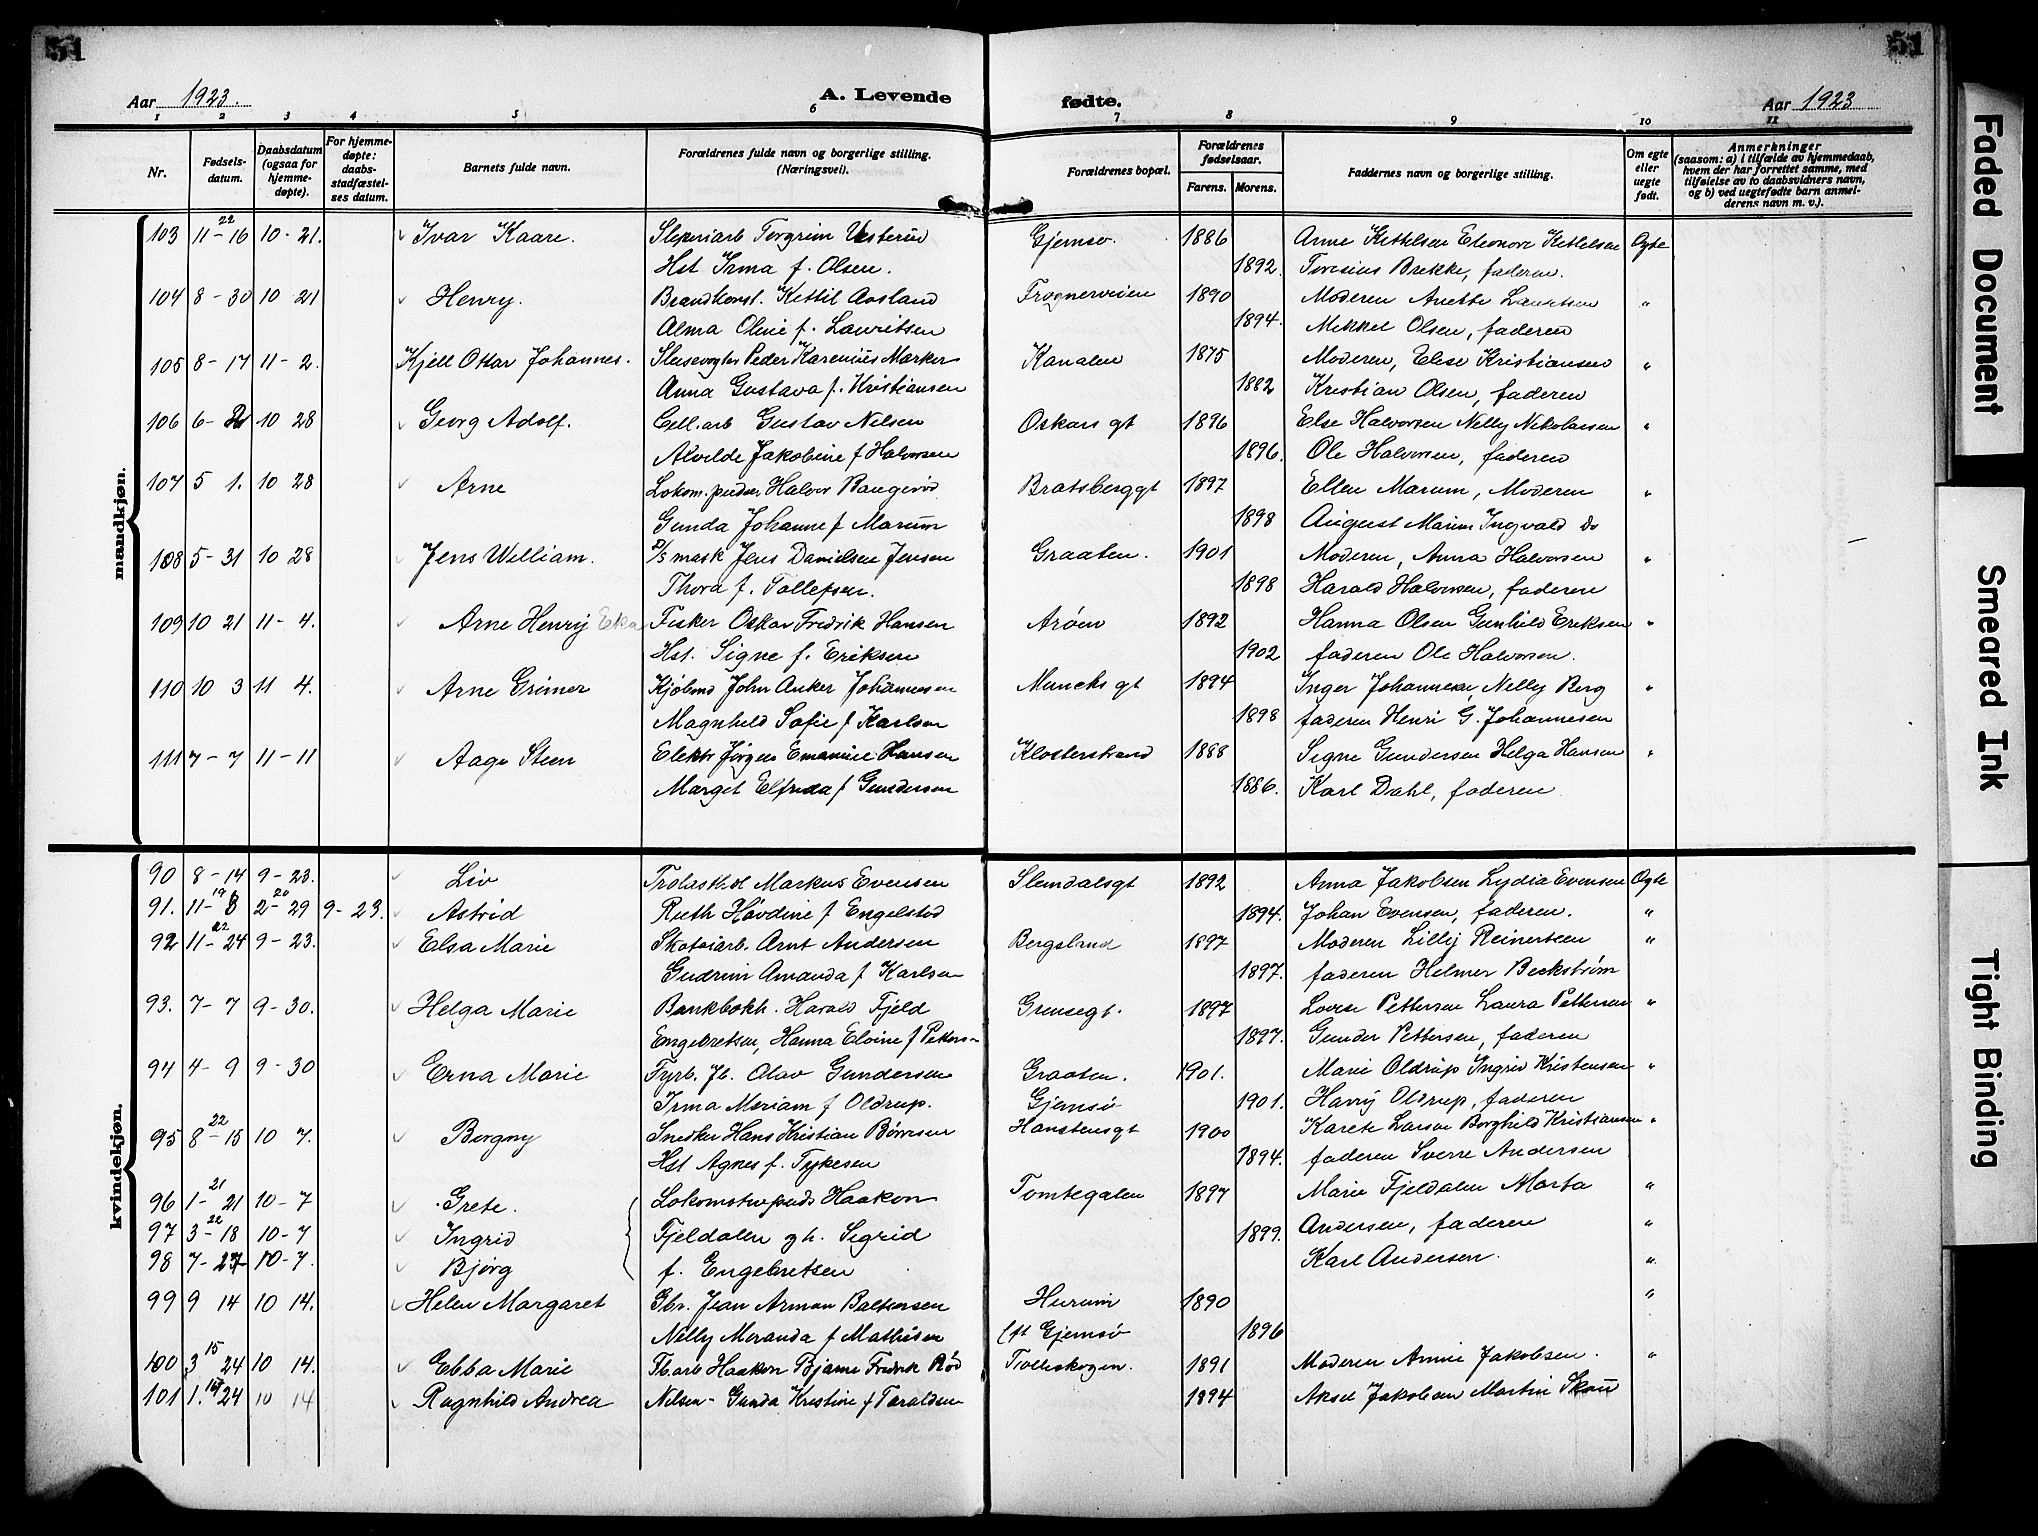 51
51
Aar 1923.
A. Levende
fødte.
Aar 1923
1 2 3 4 5 6 7 8 9 10 11
Nr.
Fødsels-
datum.
Daabsdatum
(ogsaa for
hjemme-
døpte).
For hjemme-
døpte:
daabs-
stadfæstel-
ses datum.
Barnets fulde navn.
Forældrenes fulde navn og borgerlige stilling.
(Næringsvei).
Forældrenes bopæl.
Forældrenes
fødselsaar.
Farens. Morens.
Faddernes navn og borgerlige stilling.
Om egte
eller
uegte
født.
Anmerkninger
(saasom: a) i tilfælde av hjemmedaab,
hvem der har forrettet samme, med
tilføielse av to daabsvidners navn,
og b) ved uegtefødte barn anmel-
derens navn m. v.).
mandkjøn.
103 11-16 22 10-21. Ivar Kaare. Torgrim Gjemsø. 1886 Anne Kittilsen Eleonore Kittilsen Egte
Hst Irma f. Olsen. 1892. Brekke, faderen.
104 8-30 10 21 Henry. Kittil Aasland Frognerveien 1890 Moderen Anette Lauritsen "
Alma Oline f. Lauritsen 1894. Mikkel Olsen, faderen
105 8-17 11-2. Kjell Oskar Johannes. Slusevogter Peder Karenius Marker Kanalen 1875 Moderen, Elise Kristiansen "
Anna Gustava f. Kristiansen 1882 Kristian Olsen, faderen
106 6- 10 28 Georg Adolf. Cell.arb Gustav Nilsen Oskars gt 1896 Else Halvorsen Nelly Nikolaisen "
Alvilde Jakobine f Halvorsen 1896. Ole Halvorsen, faderen
107 5 1. 10 28 Arne Lokom.pudser Halvor Baugerød Bratsberggt 1897 Ellen Marum, Moderen "
Gunda Johanne f Marum 1898 August Marum Ingvald Do
108 5-31 10 28 Jens William. D/S mask Jens Danielsen Jensen Graaten. 1901 Moderen, Anna Halvorsen "
Thora f. Tollefsen. 1898 Harald Halvorsen, faderen
109 10 21 11-4. Arne Henry Fisker Oskar Fredrik Hansen Arøen 1892 Hanna Olsen Gunhild Eriksen "
Hst. Signe f. Eriksen 1902 faderen Ole Halvorsen.
110 10 3 11 4. Arne Greiner Kjøbmd John Anker Johannesen Muncks gt 1894 Inger Johannesen, Nelly Berg "
Magnhild Sofie f Karlsen 1898 faderen Henri G. Johannesen
111 7-7 11-11 Aage Steen Elektr Jørgen Emanuel Hansen Klosterstrand 1888 Signe Gundersen Helga Hansen "
Marget Elfrida f Gundersen 1886. Karl Dahl, faderen
kvindekjøn.
90 8-14 9-23. Liv Markus Evensen Slemdalsgt 1892 Anna Jakobsen Lydia Evensen Egte
91. 11-8 19 2-29 20 9-23. Astrid Ruth Høvdine f Engelstad 1894. Johan Evensen, faderen. "
92 11-24 22 9-23. Elsa Marie Skotøiarb. Arnt Andersen Bergsland 1897 Moderen Lilly Reinertsen "
Gudrun Amanda f Karlsen 1897. faderen Helmer Beckstrøm
93. 7-7 9-30. Helga Marie Bankbokh. Harald Fjeld Grensegt. 1897 Lovise Pettersen Laura Pettersen "
Engebretsen, Hanna Elvine f Petters- 1897. Gunder Pettersen, faderen
94 4-9 9-30 Erna Marie Fyrb. Jb. Olav Gundersen Graaten. 1901. Marie Oldrup Ingrid Kristensen "
Irma Meriam f Oldrup. Gjemsø 1901. Harry Oldrup, faderen
95 8-15 22 10 7. Borgny Snedker Hans Kristian Børresen Hansteensgt 1900 Karete Larsen Borghild Kristiansen "
Hst Agnes f. Tykesen 1894. faderen Sverre Andersen
96 1-21 21 10-7 Grete. Haakon Tomtegaten 1897 Marie Fjeldalen Marta "
97 3-18 22 10-7 Ingrid Fjeldalen gh. Sigrid 1899. Andersen, faderen "
98 7-27 10-7. Bjørg f. Engebretsen Karl Andersen. "
99 9 14 10 14. Helen Margaret Gbr. Jean Arman Baltersen Hurum 1890 "
Nelly Meranda f Mathisen Gjemsø 1896
100 3 24 15 10 14. Ebba Marie Fb.arb Haakon Bjarne Fredrik Rød Trolleskogen. 1891 Moderen Annie Jakobsen. "
101 1. 24 10 14 Ragnhild Andrea Nilsen- Gunda Kristine f Taraldsen 1894 Aksel Jakobsen Martin Skau
Faded Document
Smeared Ink
Tight Binding